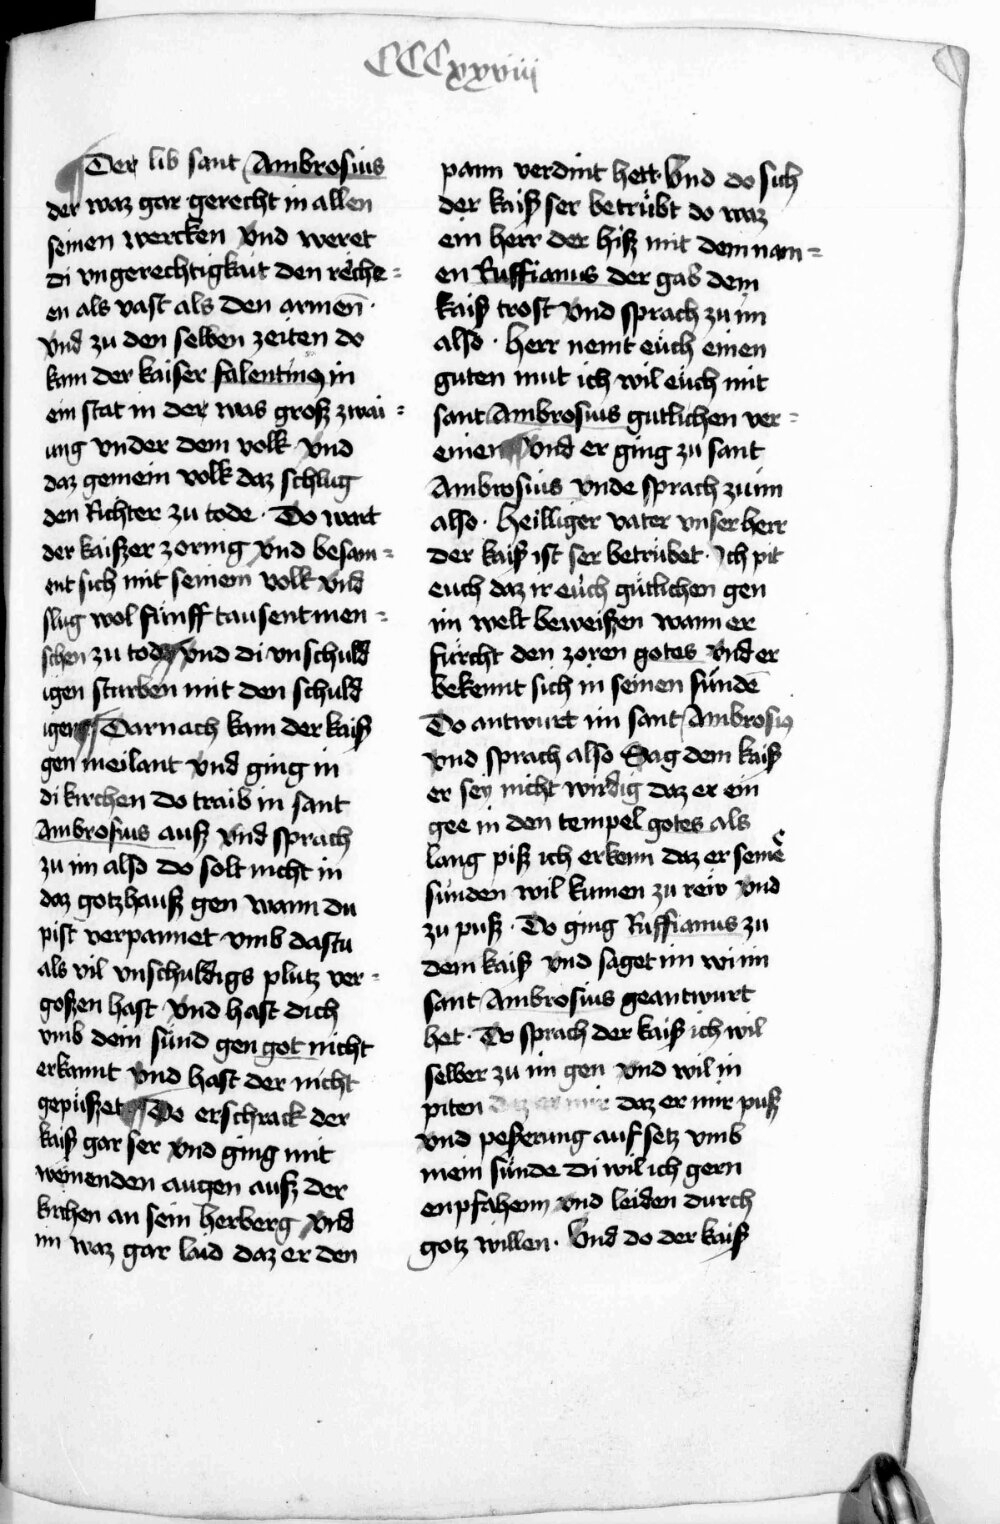 CCCxxviii
Der lib sant Ambrosius
der waz gar gerecht in allen
seinen wercken vnd weret
di vngerechtigkait den reiche=
en als vast als den armen̄ ·
vnd zu den selben zeiten do
kam der kaiser falentin9 in
ein stat in der was grosz zwai=
ung vnder dem volk vnd
daz gemein volk daz schlug
den Richter zu tode · Do wart
der kaiszer zornig vnd besam=
ent sich mit seinem volk vnd
slug wol fünff tausent men=
schen zu tod vnd di vnschuld
igen sturben mit den schuld
igen ¶ Darnach kam der kaisz
gen meilant vnd ging in
di kirchen do traib in sant
Ambrosius ausz vnd sprach
zu im also do solt nicht in
daz gotzhausz gen wann du
pist verpannet vmb dastu
als vil vnschuldigs plutz ver=
goszen hast vnd hast dich
vmb dein sünd gen got nicht
erkannt vnd hast der nicht
gepüszet ¶ Do erschrack der
kaisz gar ser vnd ging mit
weinenden augen ausz der
kirchen an sein herberg vnd
im waz gar laid daz er den
pann verdint hett · Vnd do sich
der kaisz ser betrübt do waz
ein herr der hisz mit dem nam=
en Ruffianus der gab dem
kaisz trost vnd sprach zu im
also · Herr nemt eüch einen
guten mut ich wil eüch mit
sant Ambrosius gutlichen ver=
einen ¶ vnd er ging zu sant
Ambrosius vnde sprach zu im
also · Heilliger vater vnser herr
der kaisz ist ser betrübet · Ich pit
euch daz ir eüch gütlichen gen
im welt beweiszen wann er
fürcht den zoren gotes vnd er
bekennt sich in seinen sündē
Do antwurt im sant Ambrosi9
vnd sprach also Sag dem kaisz
er sey nicht wirdig daz er ein
gee in den tempel gotes als
lang pisz ich erkenn daz er seinē
sünden wil kumen zu rew vnd
zu pusz · Do ging Ruffianus zu
dem kaisz vnd saget im wi im
sant Ambrosius geantwurt
het · Do sprach der kaisz ich wil
selber zu im gen vnd wil in
piten daz er mir daz er mir pusz
vnd peszerung auf setz vmb
mein sünde di wil ich gern
enpfahenn vnd leiden durch
gotz willen · Vnd do der kaisz